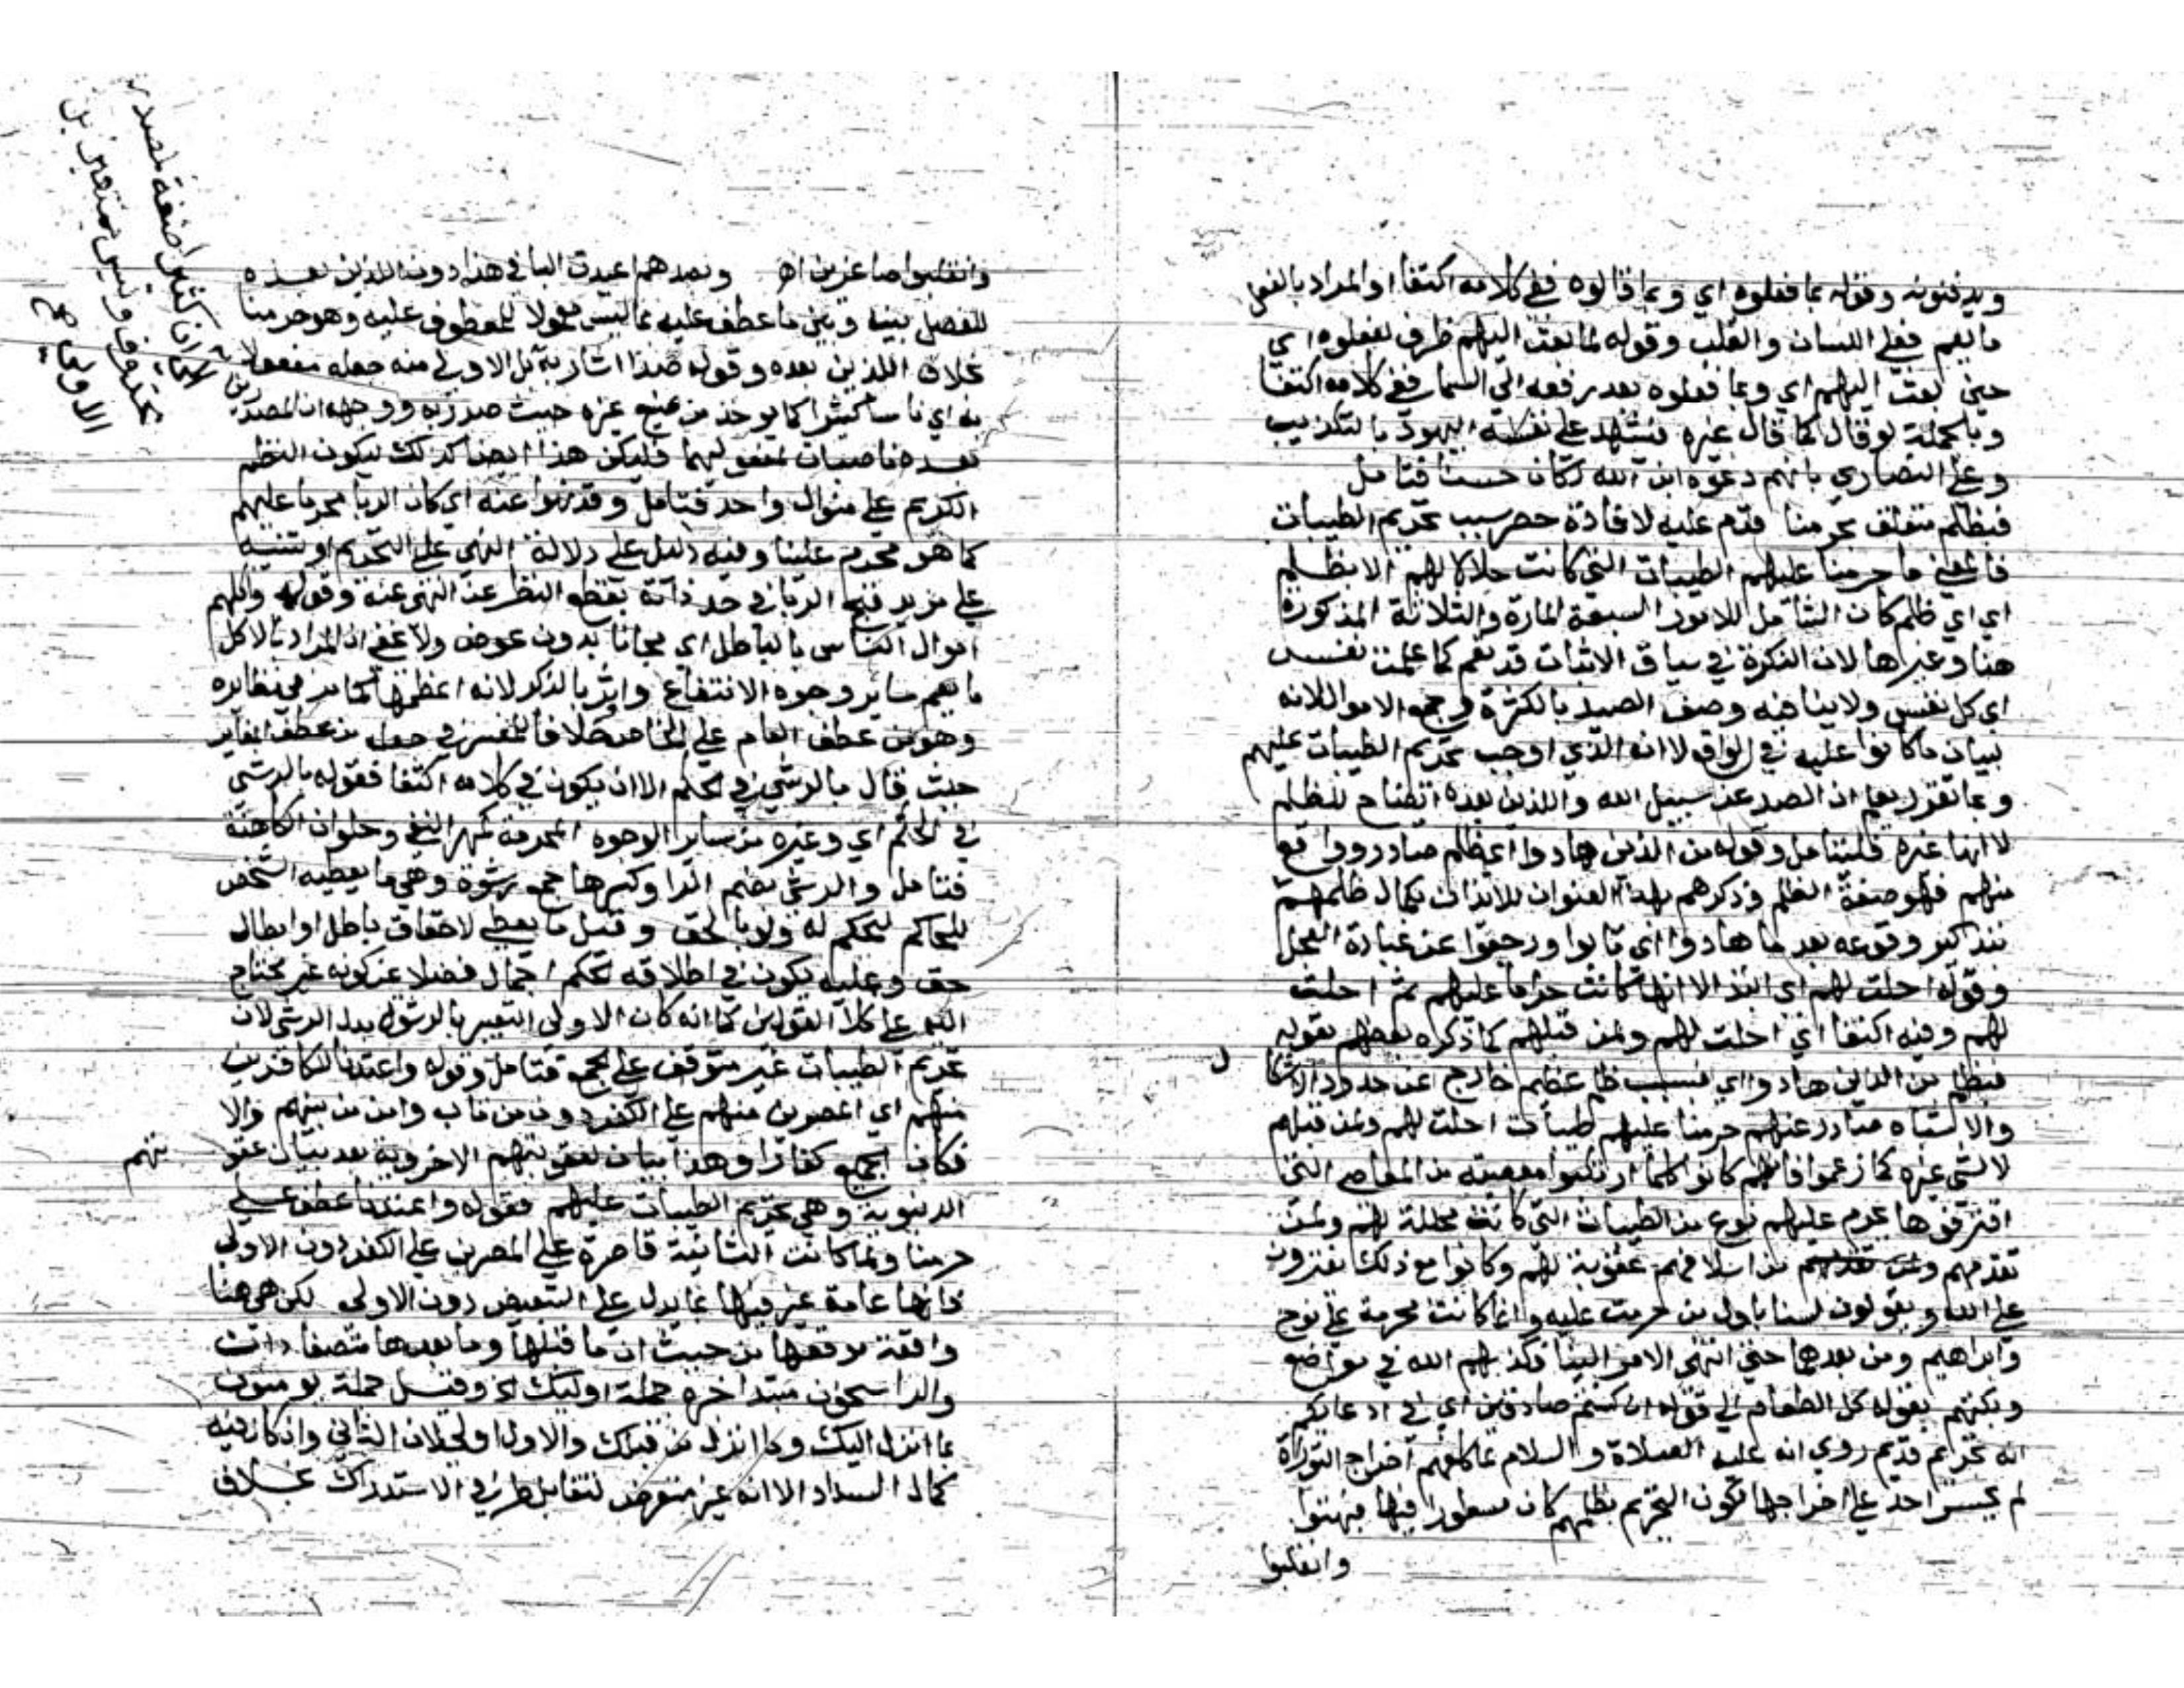 ويدفنونه وقوله بما فعلوه اي وبما قالوه ففي كلامه اكتفا او المراد بالفعل
ما يعم فعل اللسان والقلب وقوله لما بعث اليهم ظرف لفعلوه اي
حين بعث اليهم اي وبما فعلوه بعد رفعه الي السما ففي كلامه اكتفا
وبالجملة لو قال كما قال غيره فيشهد علي اليهود بالتكذيب
وعلي النصاري بانهم دعوه ابن الله لكان حسنا فتامل
فبظلم متعلق بحرمنا قدم عليه لافادة حصر سبب تحريم الطيبات
فالمعني ما حرمنا عليهم الطيبات التي كانت حلالا لهم الا بظلم
اي اي ظلم كان الشامل للامور السبعة المارة والثلاثة المذكورة
هنا وغيرها لان النكرة في سياق الاثبات قد تعم كما علمت نفس
اي كل نفس ولا ينافيه وصف الصد بالكثرة وجمع الاموال لانه
بيان ما كانوا عليه في الواقع لا انه الذي اوجب تحريم الطيبات عليهم
وبما تقرر يعلم ان الصد عن سبيل الله واللذين بعده ايضاح للظلم
لا انها غيره فليتامل وقوله من الذين هادوا اي ظلم صادر وواقع
منهم فهو صفة الظلم وذكرهم بهذا العنوان للايذان بكمال ظلمهم
بتذكير وقوعه بعد ما هادوا اي تابوا ورجعوا عن عبادة العجل
وقوله احلت لهم اي ابتدا لا انها كانت حراما عليهم ثم احلت
لهم وفيه اكتفا اي احلت لهم ولمن قبلهم كما ذكره بعضهم بقوله
فبظلم من الذين هادوا اي بسبب ظلم عظيم خارج عن حدود الاشكال
والاشتباه صادر عنهم حرمنا عليهم طيبات احلت لهم ولمن قبلهم
لا لشي غيره كما زعموا فانهم كانوا كلما ارتكبوا معصية من المعاصي التي
اقترفوها يحرم عليهم نوع من الطيبات التي كانت محللة لهم ولمن
تقدمهم من اسلافهم عقوبة لهم وكانوا مع ذلك يفترون
علي الله ويقولون لسنا باول من حرمت عليه وانما كانت محرمة علي نوح
وابراهيم ومن بعدهما حتي انتهي الامر الينا فكذبهم الله في مواضع
وبكتهم بقوله كل الطعام الي قوله ان كنتم صادقين اي في ادعايكم
انه تحريم قديم روي انه عليه الصلاة والسلام لما كلفهم اخراج التوراة
لم يجسر احد علي اخراجها لكون التحريم بظلمهم كان مسطورا فيها فبهتوا
وانقلبوا
وانقلبوا صاغرين اه وبصدهم اعيدت البا في هذا دون اللذين بعده
للفصل بينه وبين ما عطف عليه بما ليس معمولا للمعطوف عليه وهو حرمنا
بخلاف اللذين بعده وقوله صدا اشار به بل الاولي منه جعله مفعولا
به اي ناسا كثيرا كما يوخذ من صنيع غيره حيث صدر به ووجهه ان المصدرين
بعد ناصبان لمفعوليهما فليكن هذا ايضا كذلك ليكون النظم
الكريم علي منوال واحد فتامل وقد نهوا عنه اي كان الربا محرما عليهم
كما هو محرم علينا وفيه دليل علي دلالة النهي علي التحريم او تنبيه
علي مزيد قبح الربا في حد ذاته بقطع النظر عن النهي عنه وقوله واكلهم
اموال الناس بالباطل اي مجانا بدون عوض ولا يخفي ان المراد بالاكل
ما يعم ساير وجوه الانتفاع واوثر بالذكر لانه اعظمها كما مر في نظايره
وهو من عطف العام علي الخاص خلافا للمفسر في جعله من عطف المغاير
حيث قال بالرشي في الحكم الا ان يكون في كلامه اكتفا فقوله بالرشي
في الحكم اي وغيره من ساير الوجوه المحرمة كمهر البغي وحلوان الكاهنة
فتامل والرشي بضم الرا وكسرها جمع رشوة وهي ما يعطيه الشخص
للحاكم ليحكم له ولو بالحق وقيل ما يعطي لاحقاق باطل او ابطال
حق وعليه يكون في اطلاقه الحكم اجمال فضلا عن كونه غير محتاج
اليه علي كلا القولين كما انه كان الاولي التعبير بالرشوة بدل الرشي لان
تحريم الطيبات غير متوقف علي الجمع فتامل وقوله واعتدنا للكافرين
منهم اي المصرين منهم علي الكفر دون من تاب وامن من بينهم والا
فكان الجميع كفارا وهذا بيان لعقوبتهم الاخروية بعد بيان عقوبتهم
الدنيوية وهي تحريم الطيبات عليهم فقوله واعتدنا عطف علي
حرمنا ولما كانت الثانية قاصرة علي المصرين علي الكفر دون الاولي
فانها عامة عبر فيها بما يدل علي التبعيض دون الاولي لكن هي هنا
واقعة موقعها من حيث ان ما قبلها وما بعدها
والراسخون مبتدا خبره جملة اوليك الخ وقيل جملة يومنون
بما انزل اليك وما انزل من قبلك والاول اولي لان الثاني وان كان فيه
كمال السداد الا انه غير متعرض لتقابل طرفي الاستدراك بخلاف